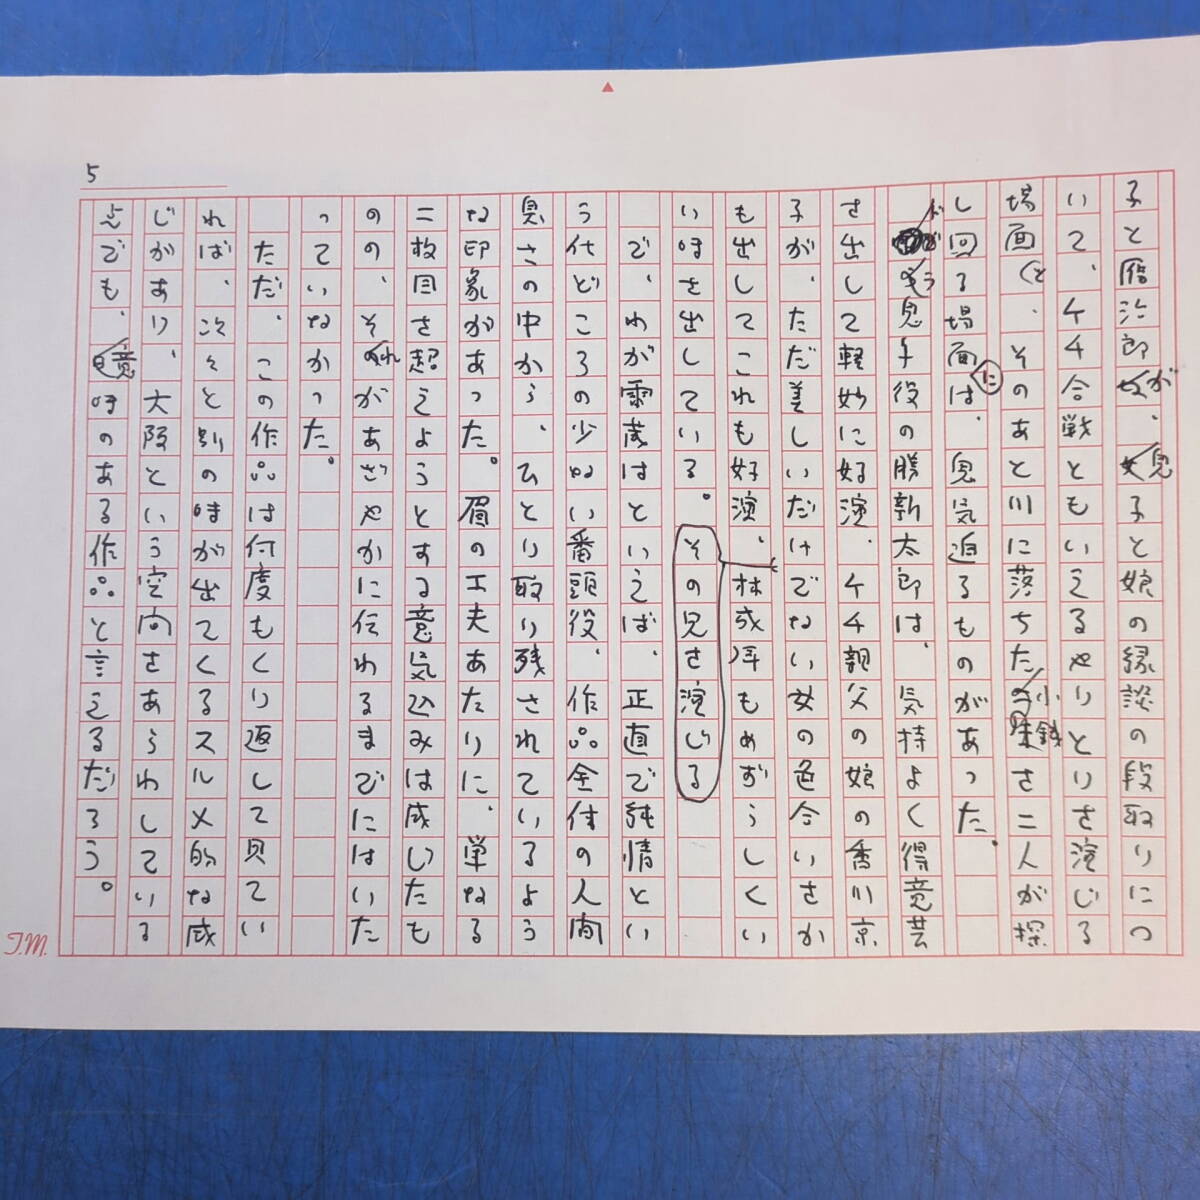 5
子と雁治郎が、息子と娘の縁談の段取りにつ
いて、ケチ合戦ともいえるやりとりを演じる
場面と、そのあと川に落ちた小銭を二人が探
し回る場面には、鬼気迫るものがあった。
ドラ息子役の勝新太郎は、気持よく得意芸
を出して軽妙に好演、ケチ親父の娘の香川京
子が、ただ美しいだけでない女の色合いさか
も出してこれも好演、林成年もめずらしくい
い味を出している。その兄を演じる
で、わが雷蔵はといえば、正直で純情とい
う代どころの少ない番頭役、作品全体の人間
臭さの中から、ひとり取り残されているよう
な印象があった。眉の工夫あたりに、単なる
二枚目を超えようとする意気込みは感じたも
のの、それがあざやかに伝わるまでにはいた
っていなかった。
ただ、この作品は何度もくり返して見てい
れば、次々と別の味が出てくるスルメ的な感
じがあり、大阪という空間をあらわしている
点でも、意味のある作品と言えるだろう。
T.M.